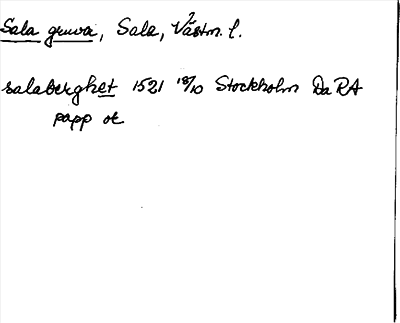 Sala gruva, Sala, Västm. l.
salaberghet 1521 18/10 Stockholm Da RA
papp or